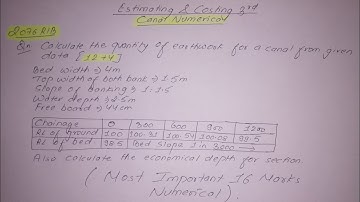 Estimating & Costing 3rd
Canal Numerical
2076 R/B
Qn Calculate the quantity of earthwork for a canal from given
data [12+4]
Bed width → 4m
Top width of both bank → 1.5m
Slope of banking → 1:1.5
Water depth → 2.5m
Free board → 44cm
Chainage 0 300 600 900 1200
RL of ground 100 100.31 100.54 100.08 98.5
RL of bed 98.5 Bed slope 1 in 3000 →
Also calculate the economical depth for section.
( Most Important 16 Marks
Numerical )